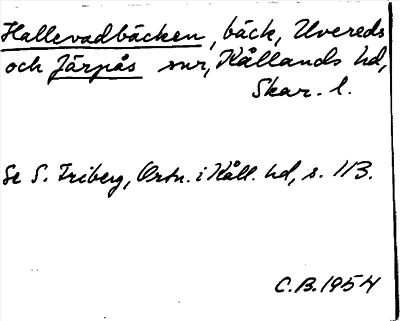 Hallevadbäcken, bäck, Uvereds
och Järpås snr, Kållands hd,
Skar. l.
Se S. Friberg, Ortn. i Kåll. hd, s. 113.
C.B. 1954